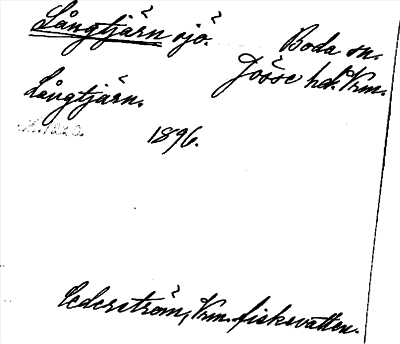 Långtjärn sjö.
Boda sn.
Jösse hd. Vrm.
Långtjärn.
1896.
Cederström, Vrm. fiskevatten.